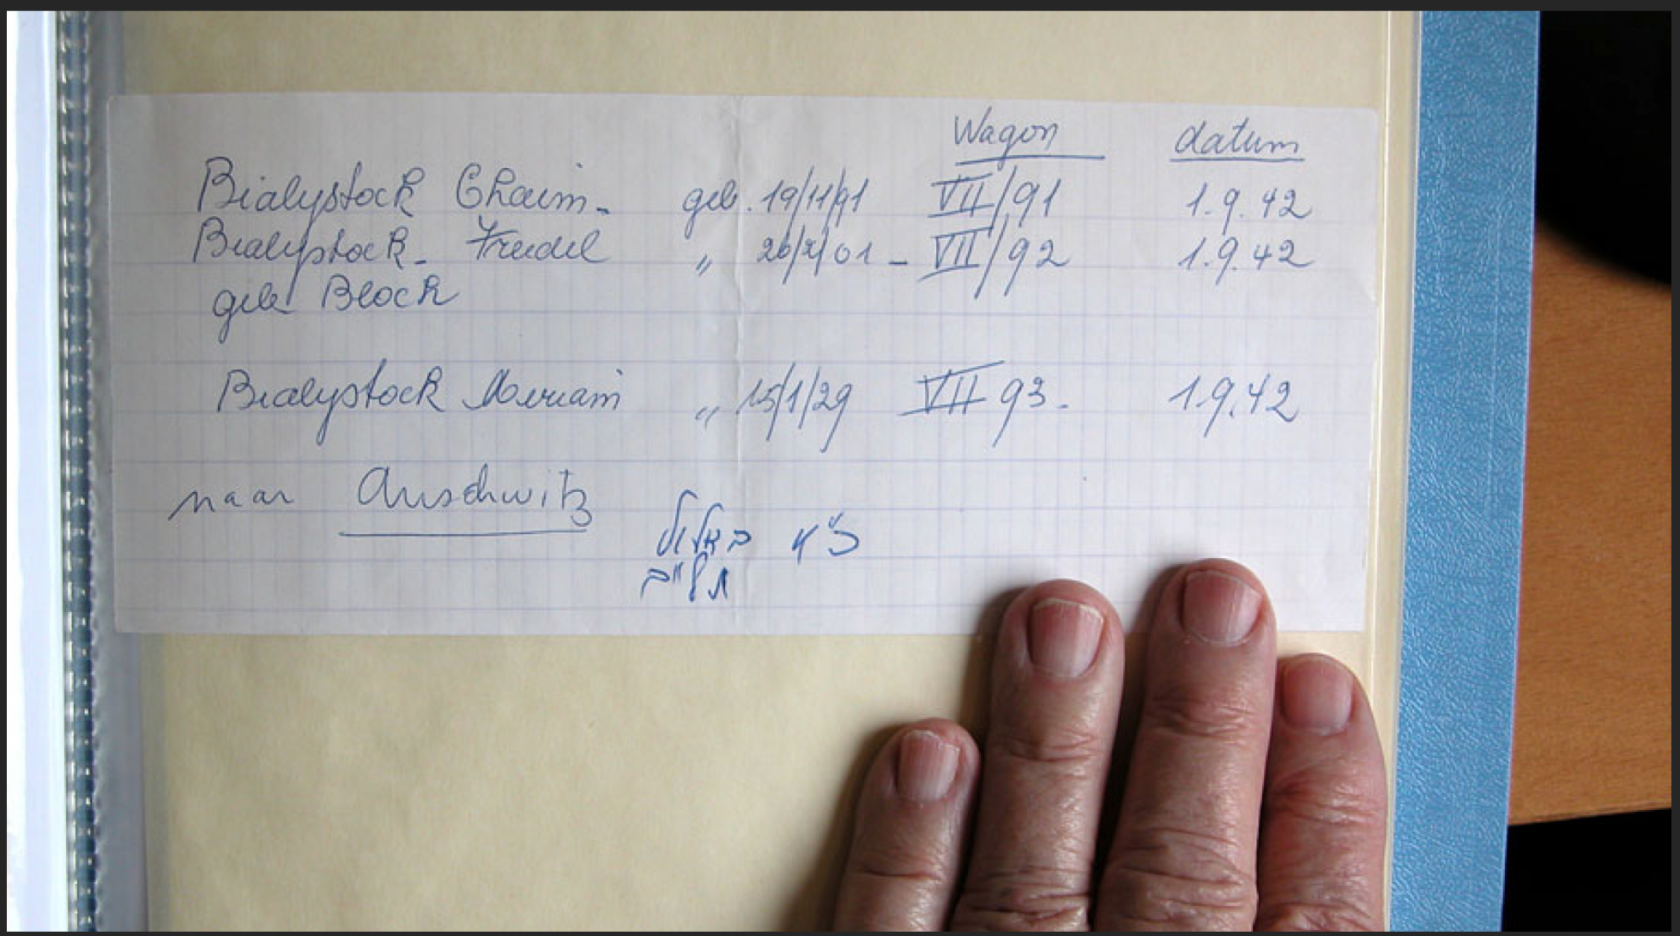 Wagon datum
Bialystock Chaim - geb. 19/11/91 VII/91 1.9.42
Bialystock - Freidel " 20/2/01 - VII/92 1.9.42
geb Block
Bialystock Meriam " 15/1/29 VII 93. 1.9.42
naar Auschwitz
כ"א באלול
תש"ב